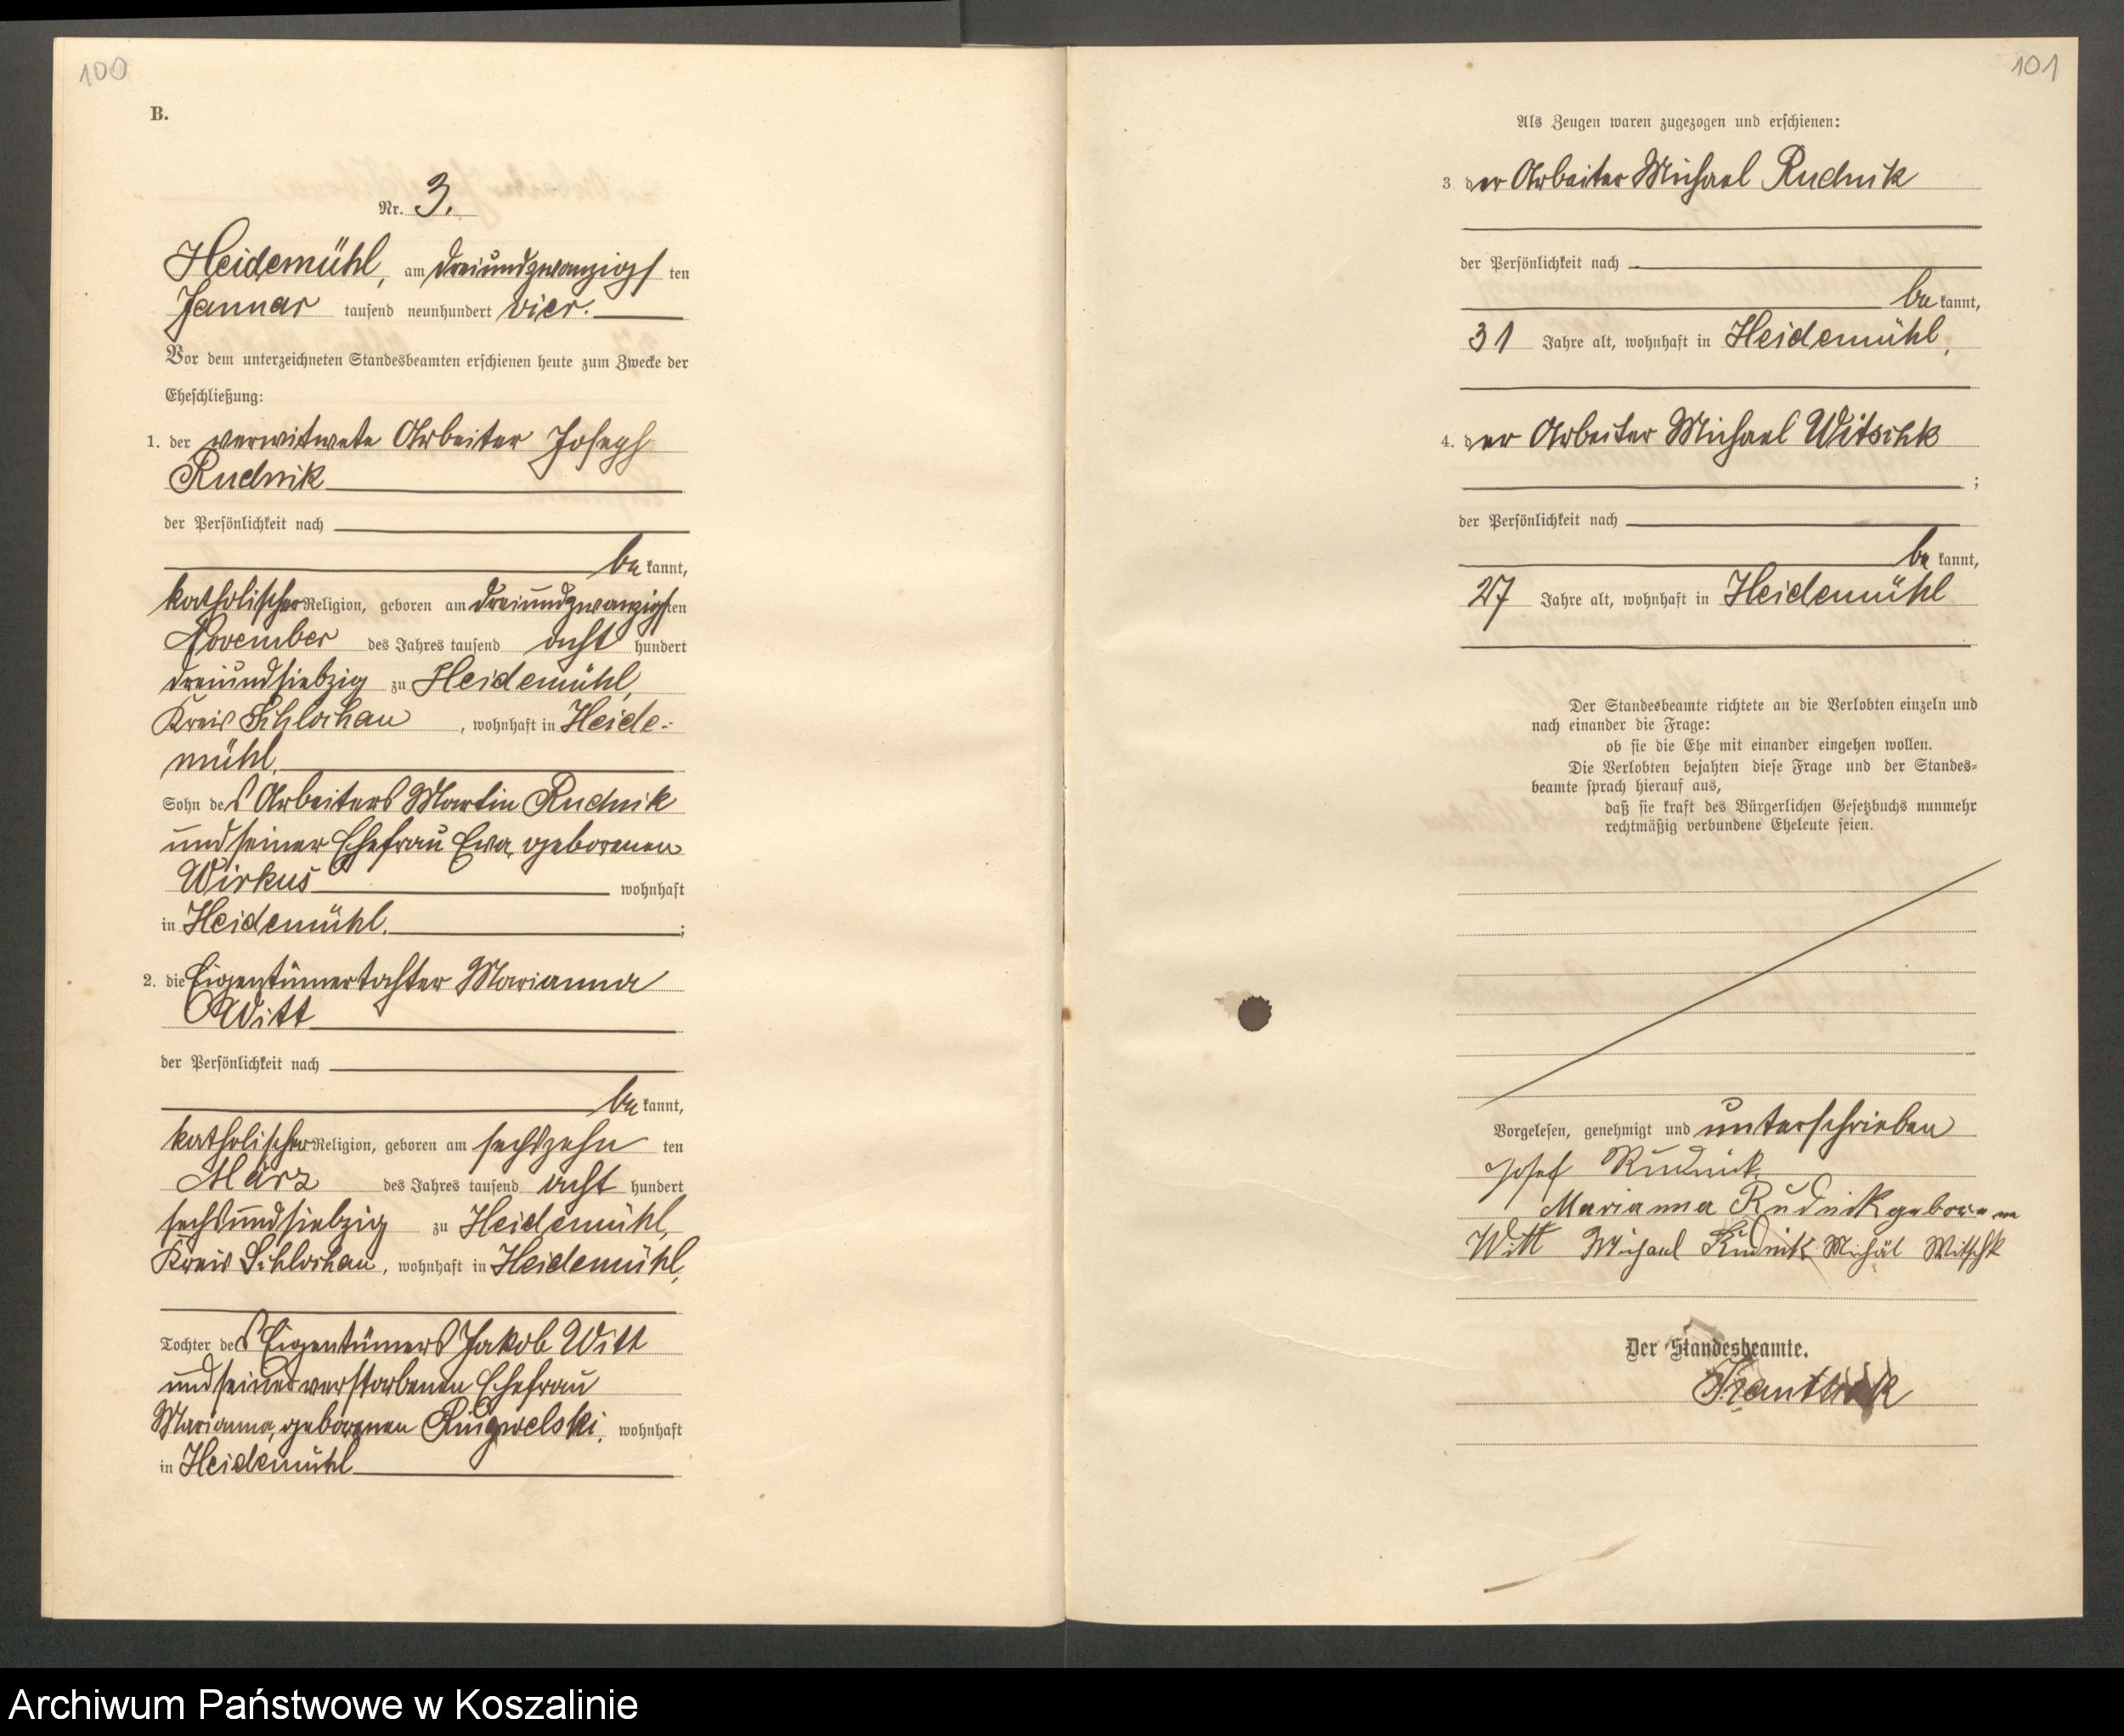 100
B.
Nr. 3.
Heidemühl, am dreiundzwanzigsten
Januar tausend neunhundert vier.
Vor dem unterzeichneten Standesbeamten erschienen heute zum Zwecke der
Eheschließung:
1. der verwitwete Arbeiter Joseph
Rudnik
der Persönlichkeit nach
bekannt,
katholischer Religion, geboren am dreiundzwanzigsten
November des Jahres tausend acht hundert
dreiundsiebzig zu Heidemühl,
Kreis Schlochau, wohnhaft in Heide-
mühl,
Sohn des Arbeiters Martin Rudnik
und seiner Ehefrau Eva, geborenen
Wirkus wohnhaft
in Heidemühl. ;
2. die Eigentümertochter Marianna
Witt
der Persönlichkeit nach
bekannt,
katholischer Religion, geboren am sechszehn ten
März des Jahres tausend acht hundert
sechsundsiebzig zu Heidemühl,
Kreis Schlochau, wohnhaft in Heidemühl,
Tochter des Eigentümers Jakob Witt
und seiner verstorbenen Ehefrau
Marianna, geborenen wohnhaft
in Heidemühl
101
Als Zeugen waren zugezogen und erschienen:
3 der Arbeiter Michael Rudnik
der Persönlichkeit nach
bekannt,
31 Jahre alt, wohnhaft in Heidemühl,
4. der Arbeiter Michael Witschk
;
der Persönlichkeit nach
bekannt,
27 Jahre alt, wohnhaft in Heidemühl
Der Standesbeamte richtete an die Verlobten einzeln und
nach einander die Frage:
ob sie die Ehe mit einander eingehen wollen.
Die Verlobten bejahten diese Frage und der Standes-
beamte sprach hierauf aus,
daß sie kraft des Bürgerlichen Gesetzbuchs nunmehr
rechtmäßig verbundene Eheleute seien.
Vorgelesen, genehmigt und unterschrieben
Josef Rudnik
Marianna Rudnik geborenen
Witt Michael Rudnik Michäl Witschk
Der Standesbeamte.
Archiwum Państwowe w Koszalinie